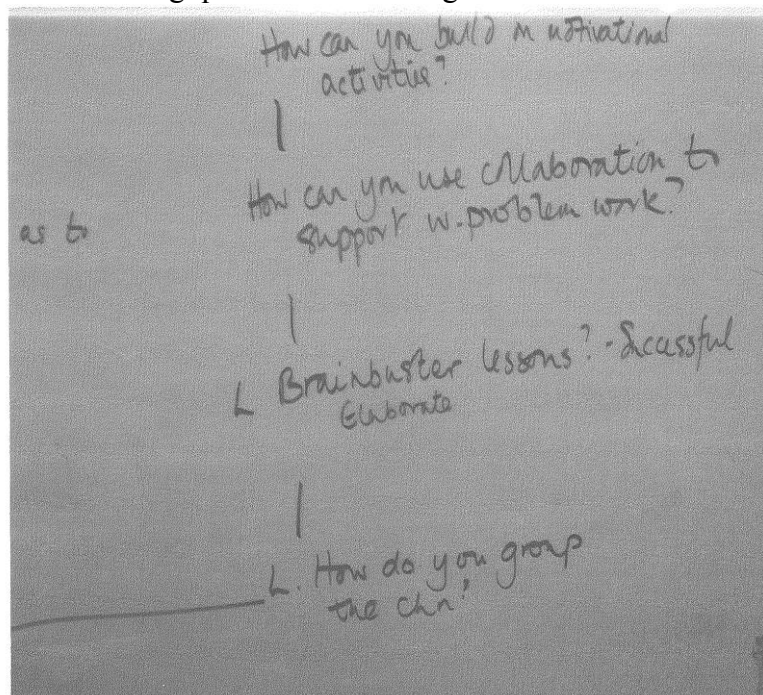 How can you build in motivational
activities?
How can you use collaboration to
as to
support w.problem work?
L Brainbuster lessons? - Sucessful
Elaborate
L. How do you group
the chn?